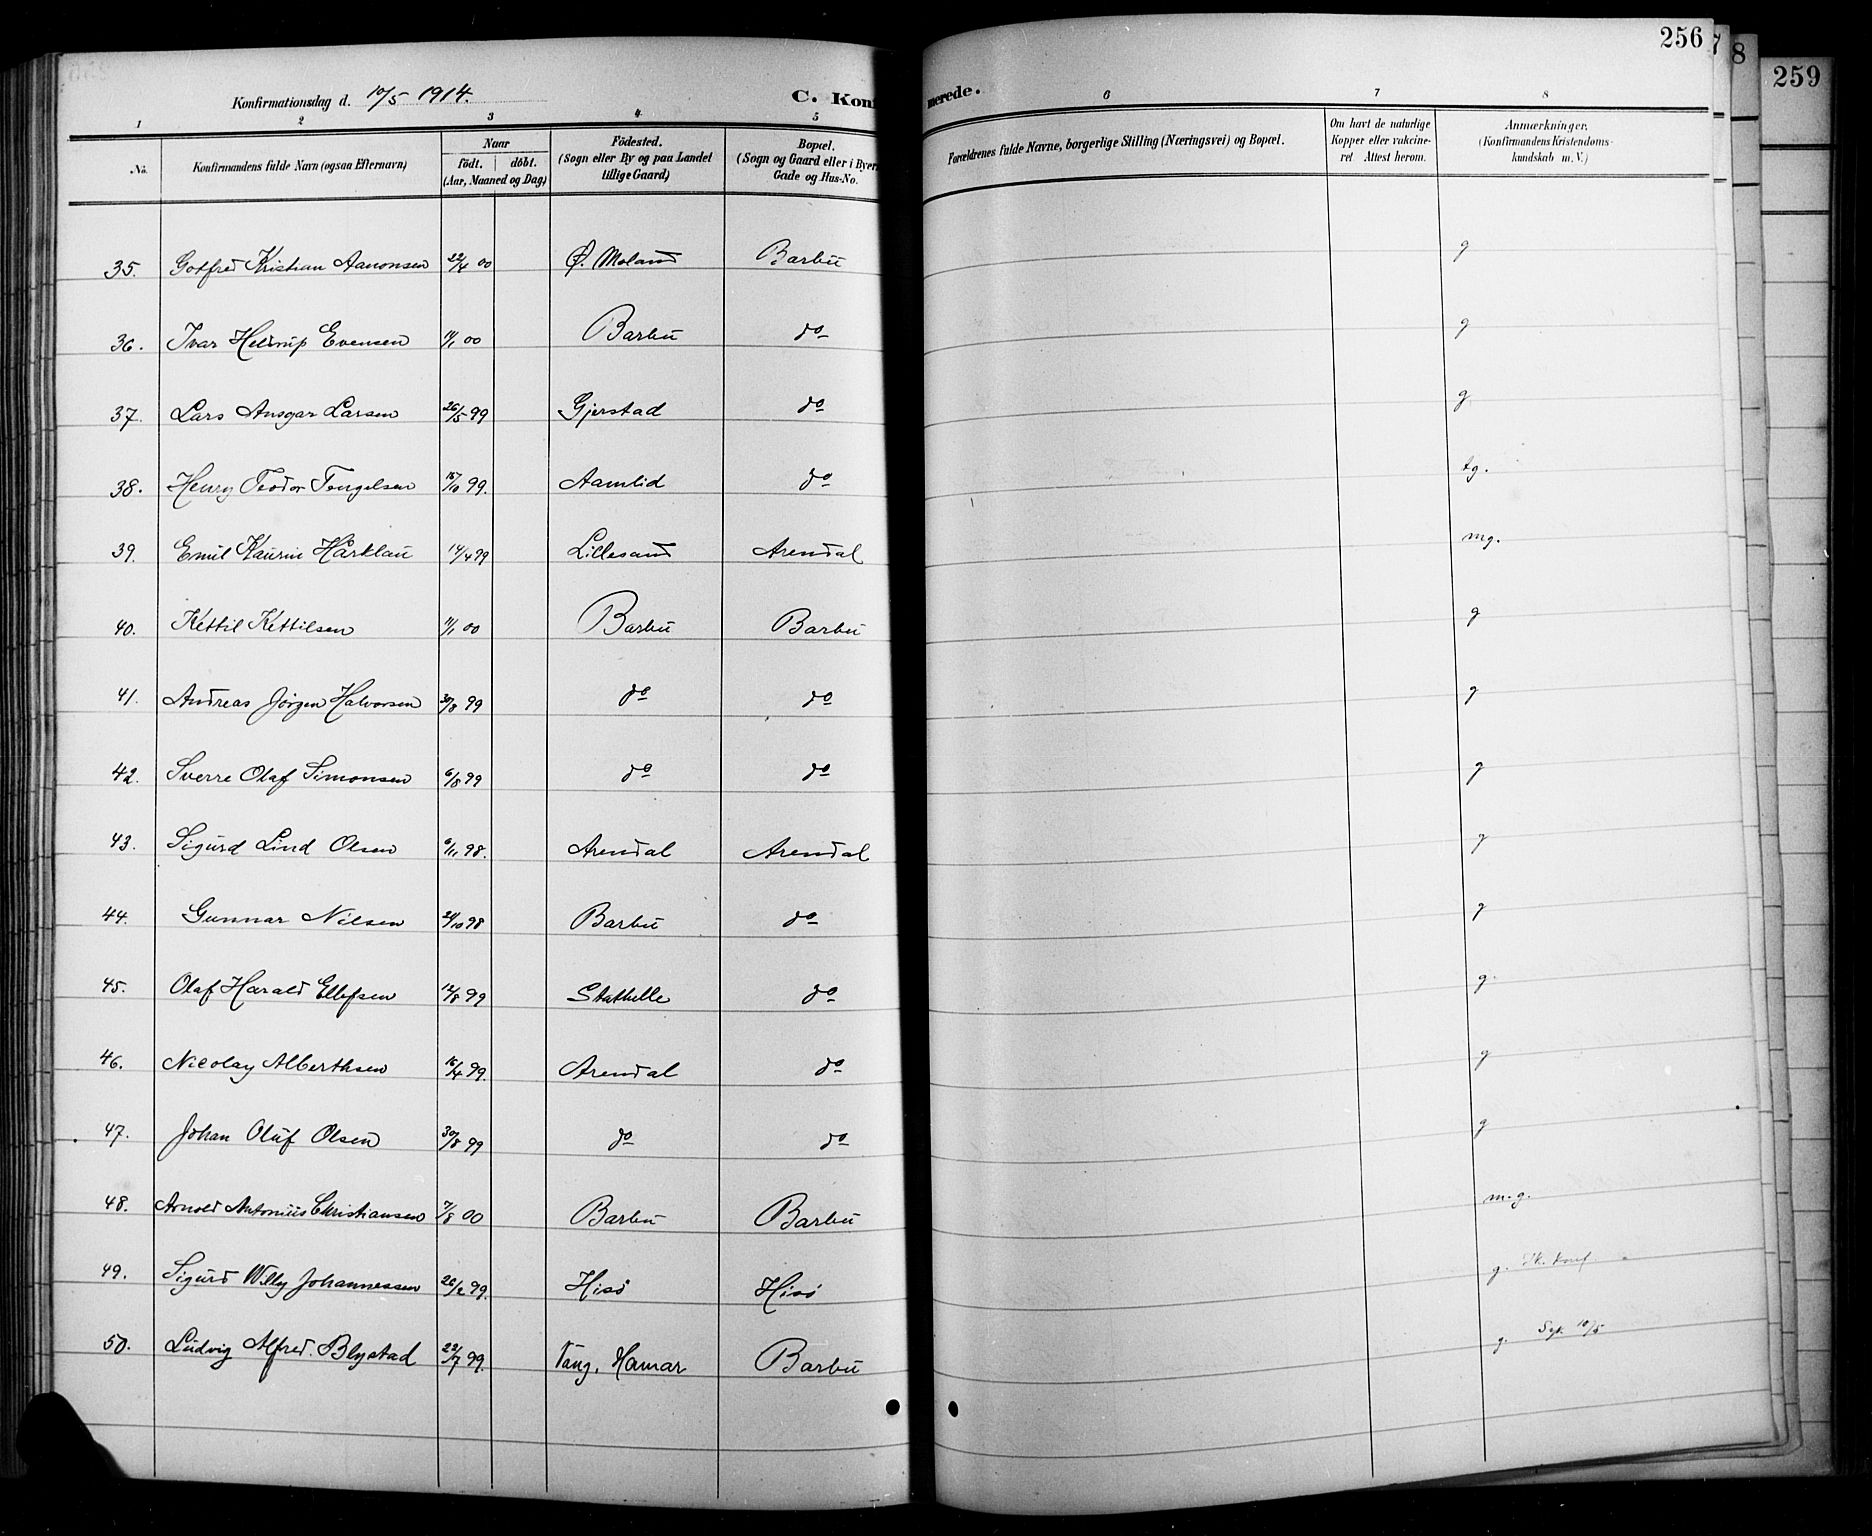 256
259
8
Konfirmationsdag d. 10/5 1914.
C. Konf
merede.
1 2 3 4 5 6 7 8
No. Konfirmandens fulde Navn (ogsaa Efternavn) Naar födt. döbt. (Aar, Maaned og Dag) Födested. (Sogn eller By og paa Landet tillige Gaard) Bopæl. (Sogn og Gaard eller i Byer Gade og Hus-No. Forældrenes fulde Navne, borgerlige Stilling (Næringsvei) og Bopæl. Om havt de naturlige Kopper eller vakcineret. Attest herom. Anmærkninger. (Konfirmandens Kristendomskundskab m. V.)
35. Gotfred Kristian Aanonsen 22/4 00 Ø. Moland Barbu g
36. Ivar Heltrup Evensen 11/1 00 Barbu do g
37. Lars Ansgar Larsen 26/5 99 Gjerstad do g
38. Henry Teodor Tengelsen 15/10 99. Aamlid do tg.
39. Emil Kaurin Harklau 14/4 99 Lillesand Arendal mg.
40. Kettil Kettilsen 11/1 00 Barbu Barbu g
41. Andreas Jørgen Halvorsen 30/8 99 do do g
42. Sverre Olaf Simonsen 6/8 99 do do g
43. Sigurd Lind Olsen 6/11 98. Arendal Arendal g
44. Gunnar Nilsen 21/10 98 Barbu do g
45. Olaf Harald Ellefsen 12/8 99 Stathelle do g.
46. Nicolay Alberthsen 16/4 99. Arendal do g
47. Johan Oluf Olsen 30/8 99 do do g
48. Arnold Antonius Christiansen 7/8 00 Barbu Barbu m.g.
49. Sigurd Willy Johannessen 26/2 99. Hisø Hisø g.
50. Ludvig Alfred. Blystad 22/7 99. Tang, Hamar Barbu g. Syk 10/5